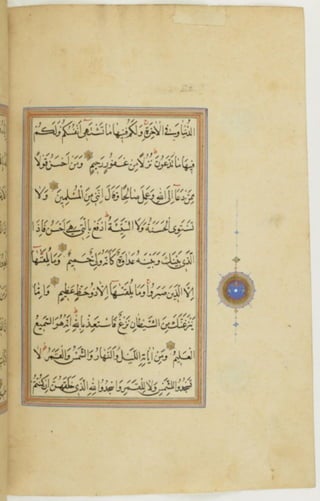 الدُّنْيَا وَفِي الْآخِرَةِ وَلَكُمْ فِيهَا مَا تَشْتَهِي أَنْفُسُكُمْ وَلَكُمْ
فِيهَا مَا تَدَّعُونَ نُزُلًا مِنْ غَفُورٍ رَحِيمٍ وَمَنْ أَحْسَنُ قَوْلًا
مِمَّنْ دَعَا إِلَى اللَّهِ وَعَمِلَ صَالِحًا وَقَالَ إِنَّنِي مِنَ الْمُسْلِمِينَ وَلَا
تَسْتَوِي الْحَسَنَةُ وَلَا السَّيِّئَةُ ادْفَعْ بِالَّتِي هِيَ أَحْسَنُ فَإِذَا
الَّذِي بَيْنَكَ وَبَيْنَهُ عَدَاوَةٌ كَأَنَّهُ وَلِيٌّ حَمِيمٌ وَمَا يُلَقَّاهَا
إِلَّا الَّذِينَ صَبَرُوا وَمَا يُلَقَّاهَا إِلَّا ذُو حَظٍّ عَظِيمٍ وَإِمَّا
يَنْزَغَنَّكَ مِنَ الشَّيْطَانِ نَزْغٌ فَاسْتَعِذْ بِاللَّهِ إِنَّهُ هُوَ السَّمِيعُ
الْعَلِيمُ وَمِنْ آيَاتِهِ اللَّيْلُ وَالنَّهَارُ وَالشَّمْسُ وَالْقَمَرُ لَا
تَسْجُدُوا لِلشَّمْسِ وَلَا لِلْقَمَرِ وَاسْجُدُوا لِلَّهِ الَّذِي خَلَقَهُنَّ إِنْ كُنْتُمْ